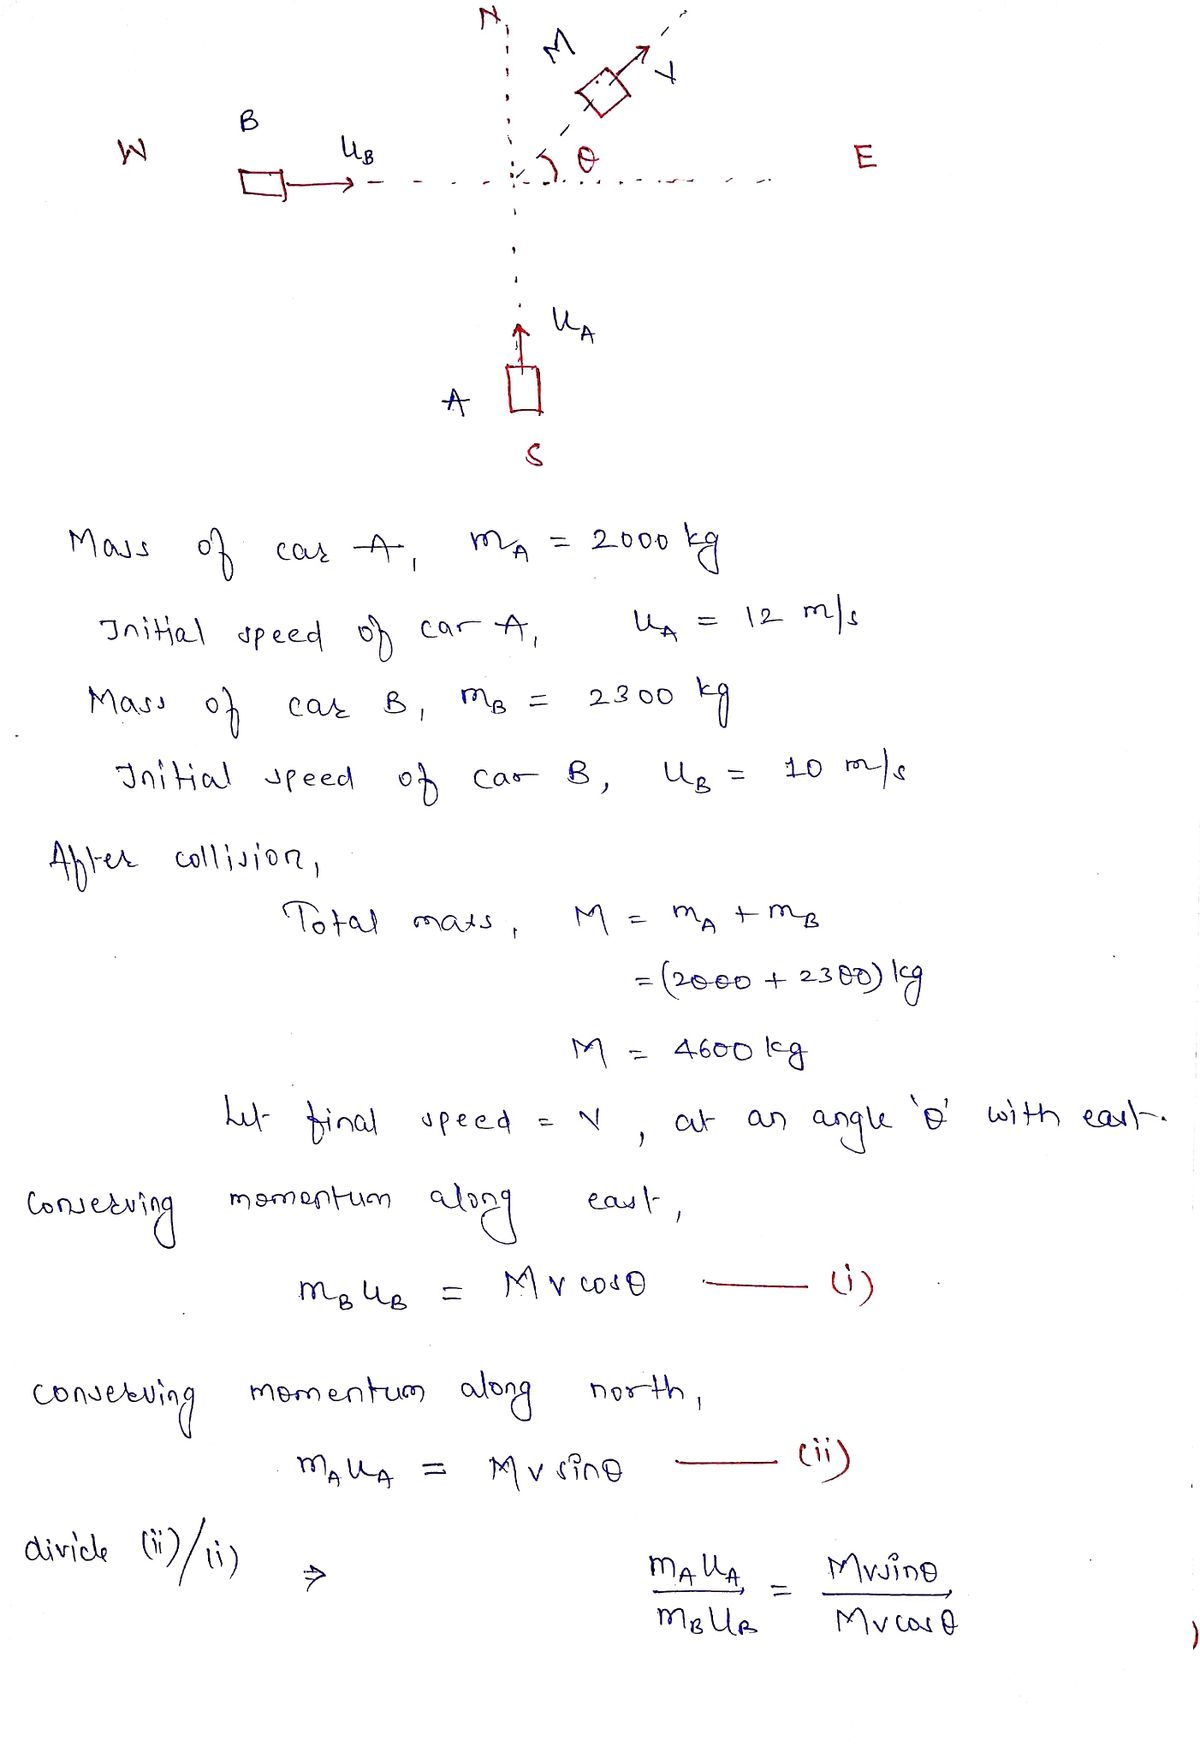 N
M
V
B
W
U_B
θ
E
U_A
A
S
Mass of car A, m_A = 2000 kg
Initial speed of car A, U_A = 12 m/s
Mass of car B, m_B = 2300 kg
Initial speed of car B, U_B = 10 m/s
After collision,
Total mass, M = m_A + m_B
= (2000 + 2300) kg
M = 4600 kg
Let final speed = V, at an angle 'θ' with east.
Conserving momentum along east,
m_B U_B = M v cosθ —— (i)
conserving momentum along north,
m_A U_A = M v sinθ —— (ii)
divide (ii)/(i) ⇒ m_A U_A / m_B U_B = Mvsinθ / Mvcosθ